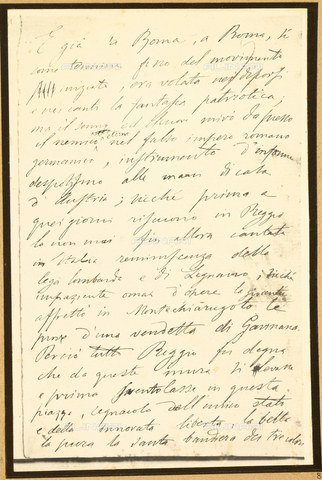 E già a Roma, a Roma, si
fino del movimento
era volata nei desideri
e nei canti la fantasia patriotica;
ma il senno ed il cuor mirò dappresso
il nemico ultimo nel falso impero romano
germanico, instrumento d'informe
despotismo alle mani di casa
d'Austria; sicché prima a
quei giorni in Reggio
la non mai fin allora cantata
in Italia reminiscenza della
lega lombarda e di Legnano; sicché
impaziente omai d'opere la gioventù
affrettò in Montechiarugolo le
prove d'una vendetta di Gavinana.
Perciò tutto Reggio fu degna
che da queste mura si levasse
e prima sventolasse in questa
piazza, segnacolo dell'unico stato
e della innovata libertà, la bella
la pura la santa bandiera dei tre colori